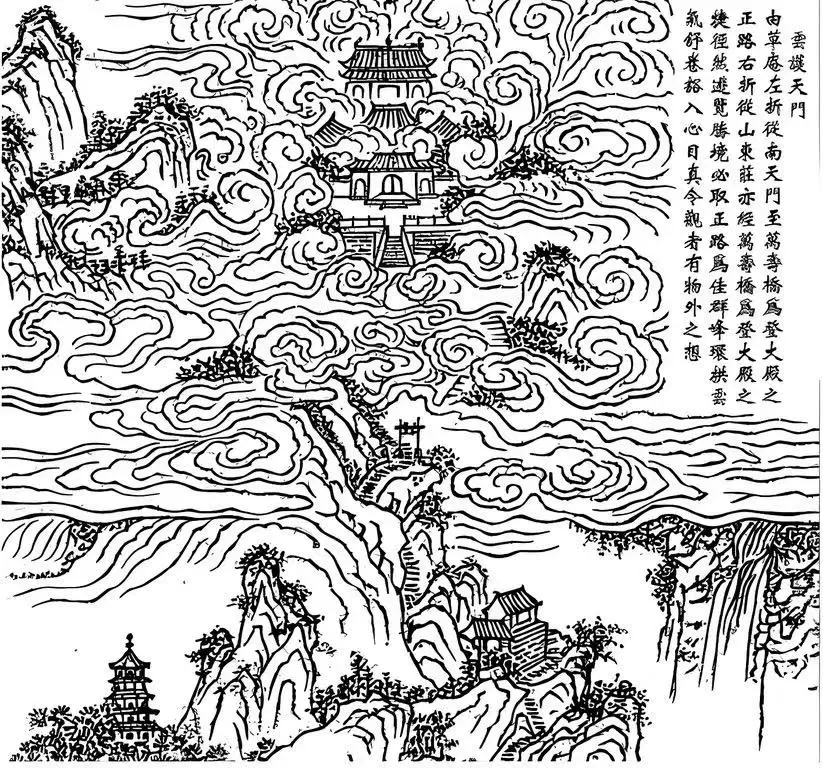 雲護天門
由草庵左折從南天門至萬壽橋爲登大殿之
正路右折從山東莊亦經萬壽橋爲登大殿之
捷徑然遊覽勝境必取正路爲佳群峰環拱雲
氣舒卷豁入心目真令觀者有物外之想